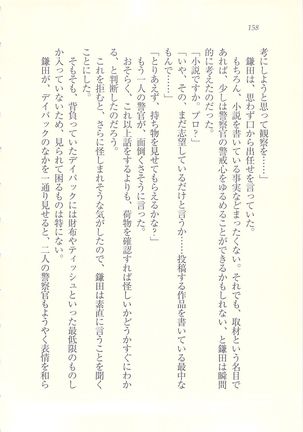 158
考にしようと思って観察を……」
鎌田は、思わず口から出任せを言っていた。
もちろん、小説を書いている事実などまったくない。それでも、取材という名目で
あれば、少しは警察官の警戒心をゆるめることができるかもしれない、と鎌田は瞬間
的に考えたのだった。
「小説ですか。プロ？」
「いや、その、まだ志望しているだけと言うか……投稿する作品を書いている最中な
もんで……」
「とりあえず、持ち物を見せてもらえるかな？」
もう一人の警官が、面倒くさそうに言った。
おそらく、これ以上話をするよりも、荷物を確認すれば怪しいかどうかすぐにわか
る、と判断したのだろう。
これを拒むと、さらに怪しまれそうな気がしたので、鎌田は素直に言うことを聞く
ことにした。
そもそも、背負っていたデイパックには財布やティッシュといった最低限のものし
か入っていないため、見られて困るものは特にない。
鎌田が、デイパックのなかを一通り見せると、二人の警察官もようやく表情を和ら